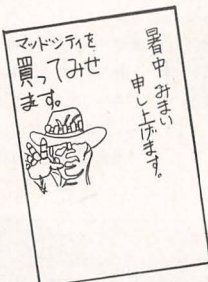 暑中みまい
申し上げます。
マッドシティを
買ってみせ
ます。